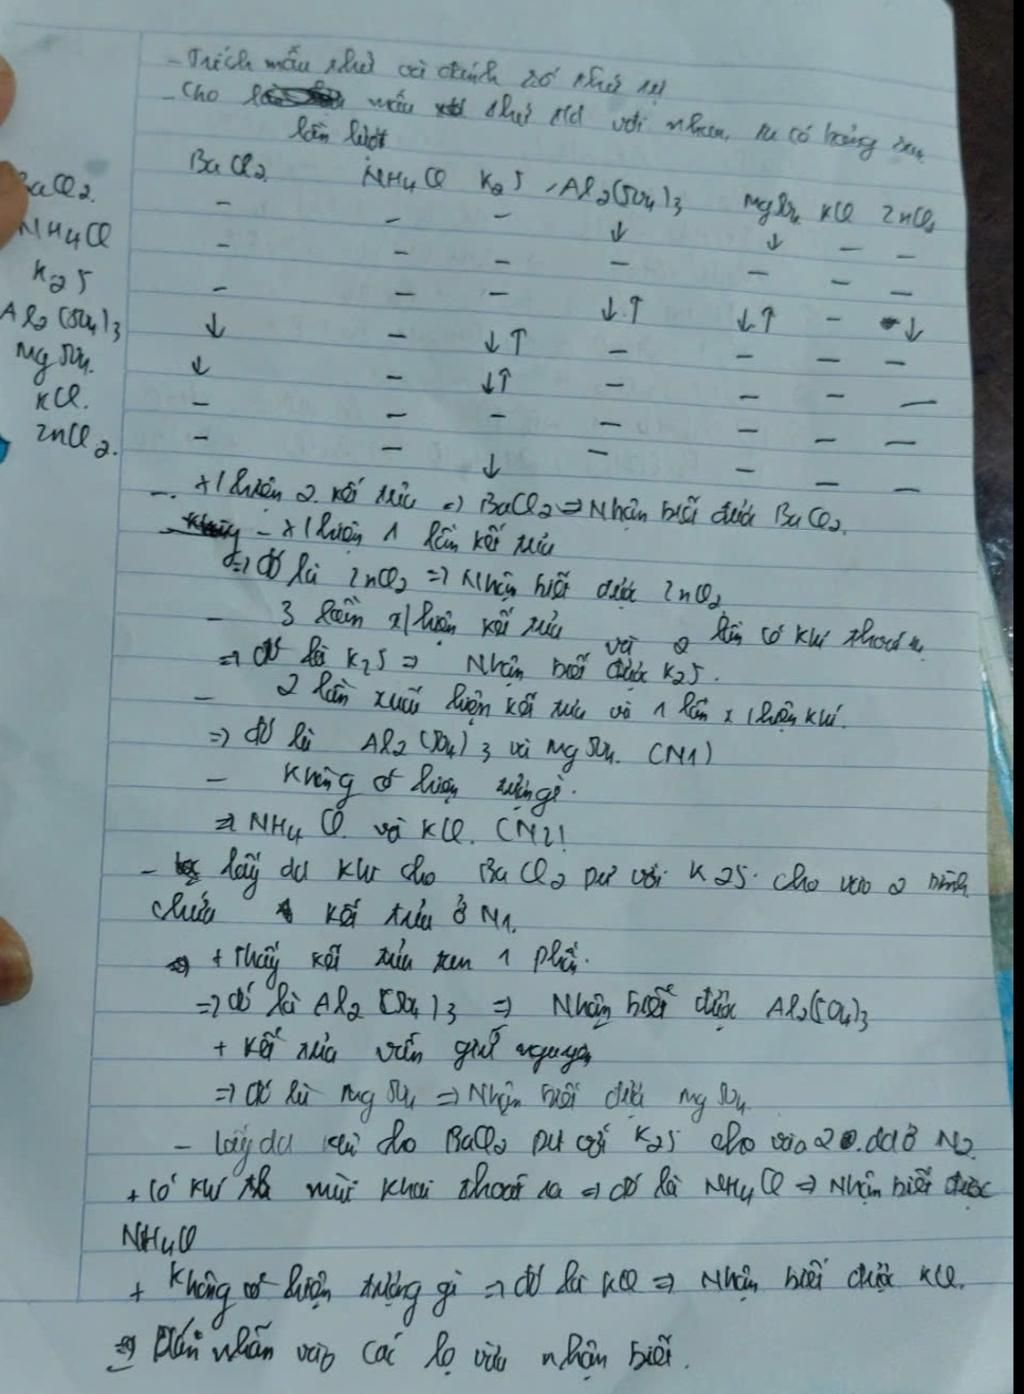 - Trích mẫu thử và đánh số thứ tự
- Cho mẫu thử td với nhau, ta có bảng sau
lần lượt
BaCl2 NH4Cl K2S Al2(SO4)3 MgSO4 KCl ZnCl2
BaCl2. - - - ↓ ↓ - -
NH4Cl - - - - - - -
K2S - - - ↓↑ ↓↑ - ↓
Al2(SO4)3 ↓ - ↓↑ - - - -
MgSO4. ↓ - ↓↑ - - - -
KCl. - - - - - - -
ZnCl2. - - ↓ - - - -
- x/hiện 2 kết tủa => BaCl2 => Nhận biết được BaCl2.
- x/hiện 1 lần kết tủa
=> Đó là ZnCl2 => Nhận biết được ZnCl2
- 3 lần x/hiện kết tủa và 2 lần có khí thoát ra
=> đó là K2S => Nhận biết được K2S.
- 2 lần xuất hiện kết tủa và 1 lần x/hiện khí.
=> đó là Al2(SO4)3 và MgSO4. (N1)
- Không có hiện tượng gì.
=> NH4Cl và KCl. (N2)
- lấy dd khi cho BaCl2 pư với K2S cho vào 2 bình
chứa kết tủa ở N1.
+ Thấy kết tủa tan 1 phần.
=> đó là Al2(SO4)3 => Nhận biết được Al2(SO4)3
+ Kết tủa vẫn giữ nguyên
=> đó là MgSO4 => Nhận biết được MgSO4
- Lấy dd khi cho BaCl2 pư với K2S cho vào 2 dd ở N2.
+ Có khí mùi khai thoát ra => đó là NH4Cl => Nhận biết được
NH4Cl
+ Không có hiện tượng gì => đó là KCl => Nhận biết được KCl.
=> Dán nhãn vào các lọ vừa nhận biết.